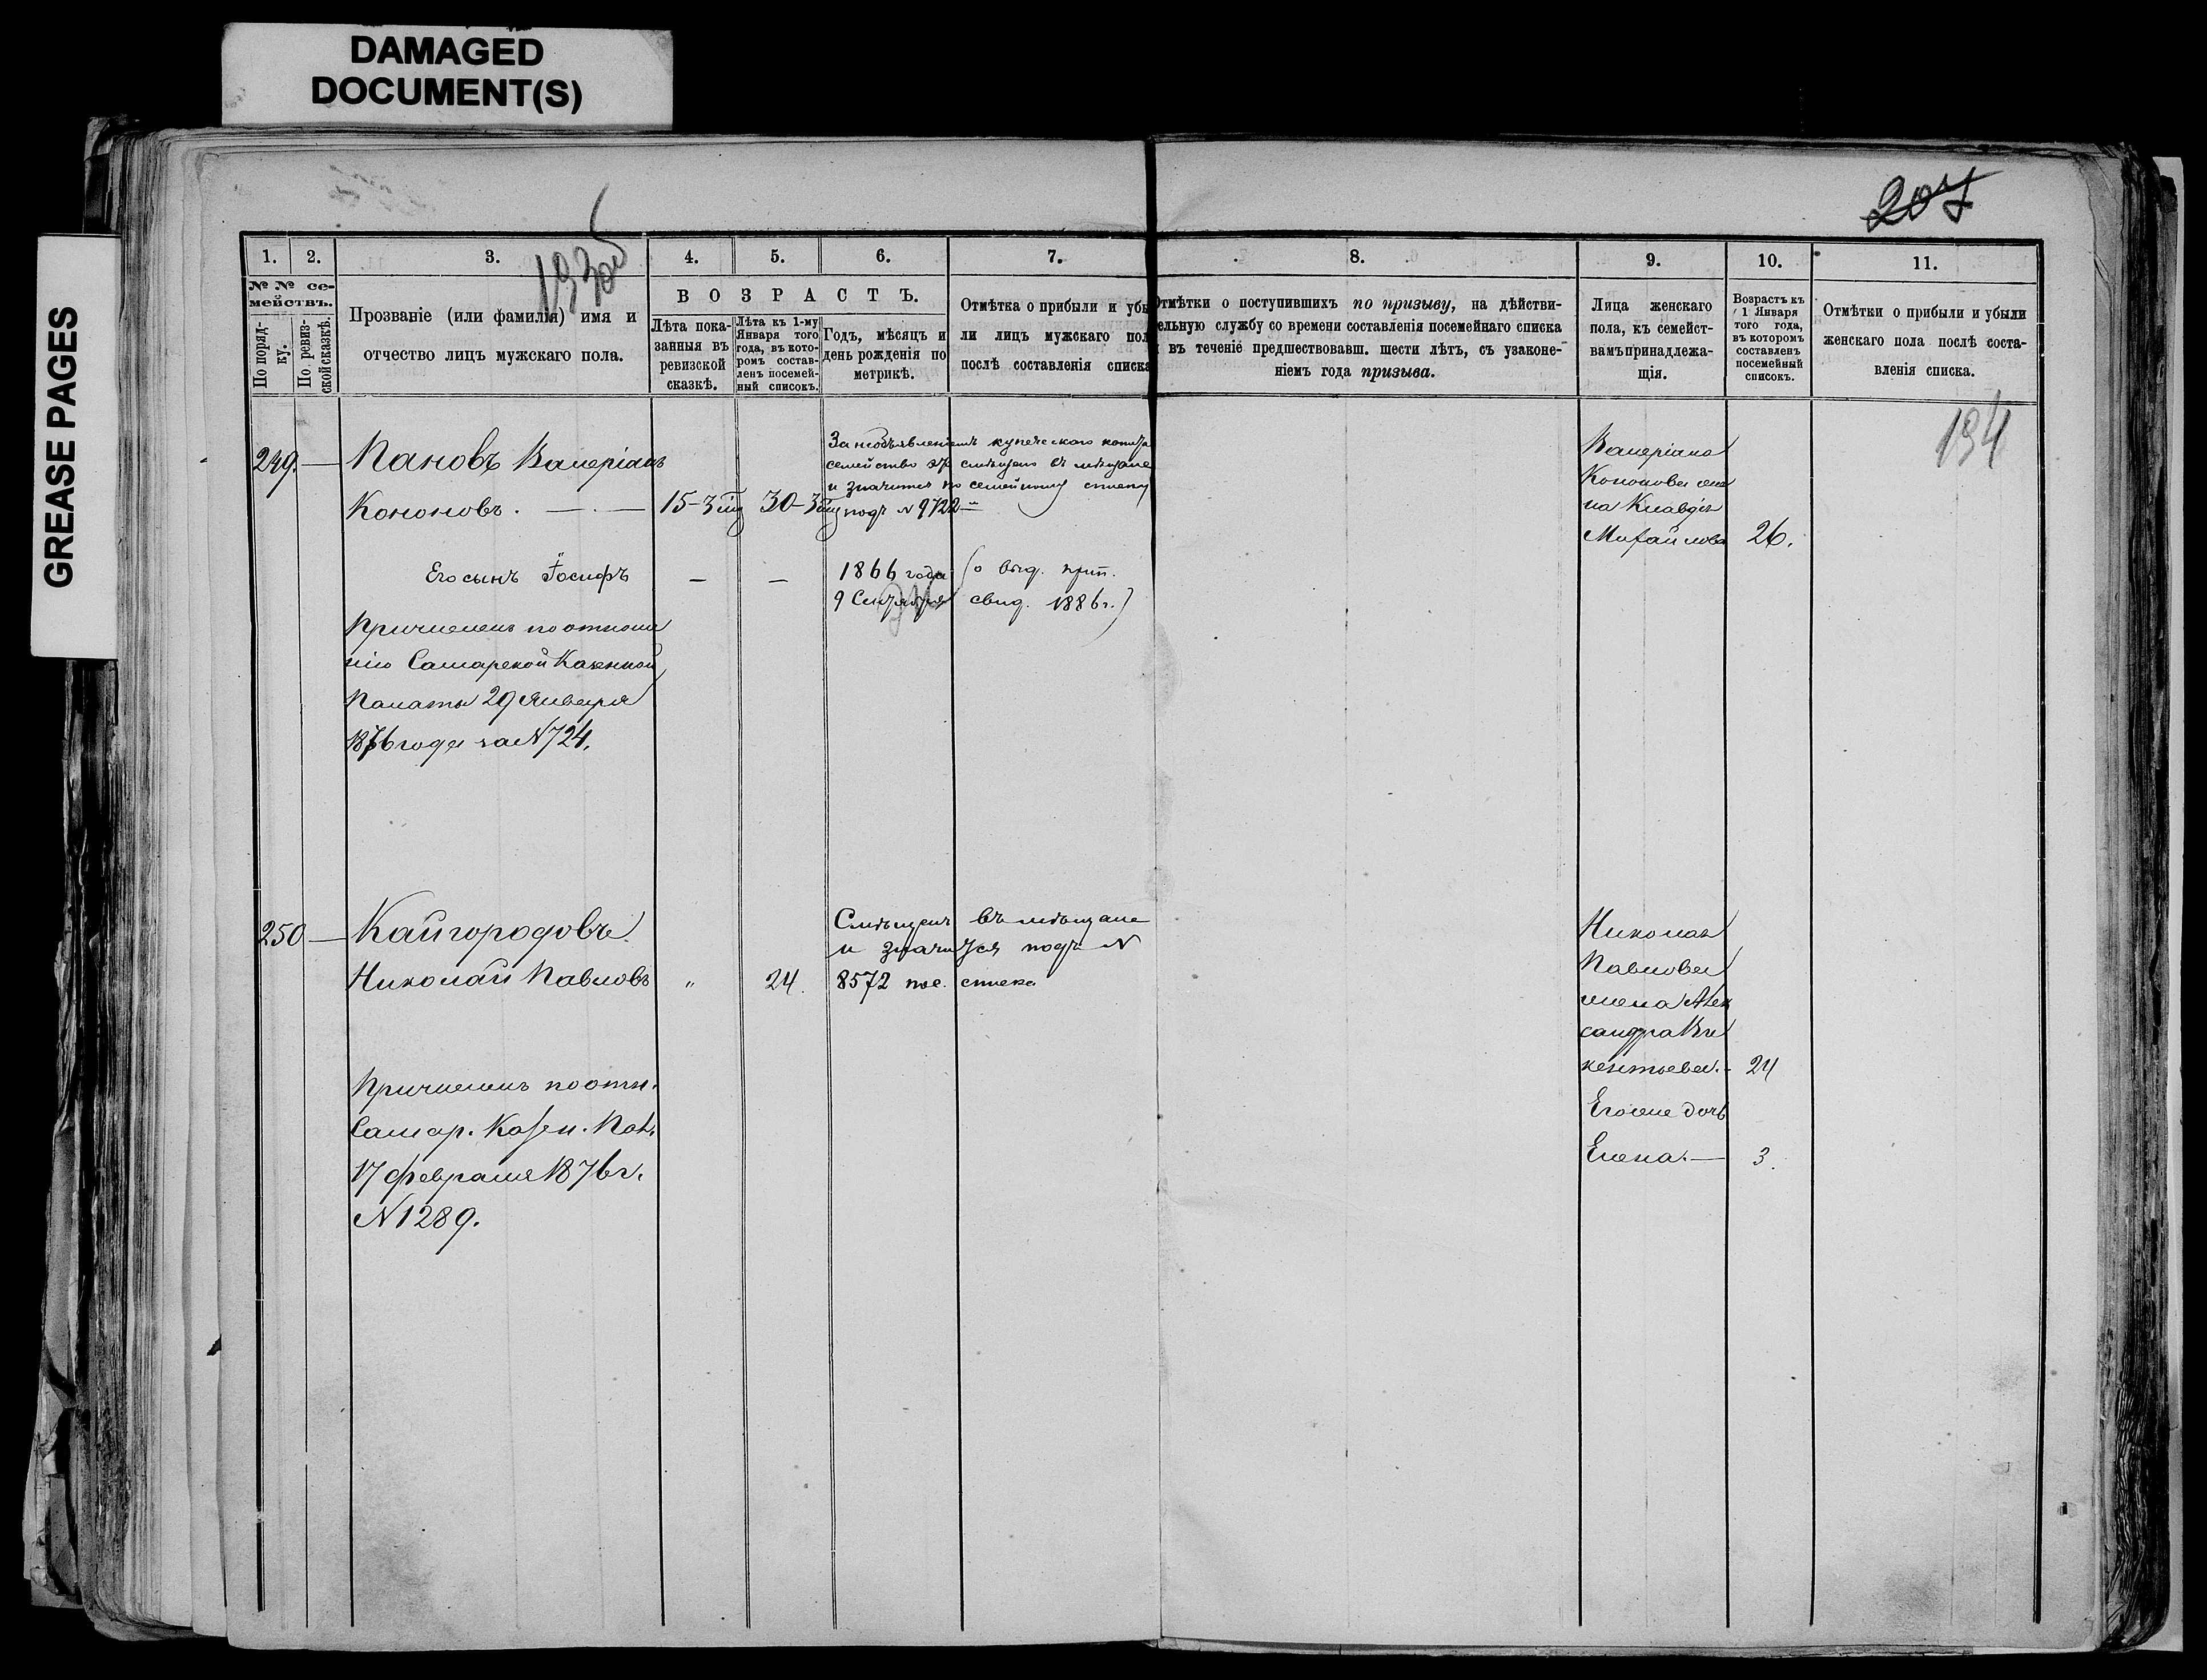 DAMAGED
DOCUMENT(S)
GREASE PAGES
207
193 об
1.
2.
3.
4.
5.
6.
7.
8.
9.
10.
11.
№ № се-
мействъ.
По поряд-
ку.
По. ревиз-
ской сказкѣ.
Прозваніе (или фамилія) имя и
отчество лицъ мужскаго пола.
В О З Р А С Т Ъ.
Лѣта пока-
занныя въ
ревизской
сказкѣ.
Лѣта къ 1-му
Января того
года, въ кото-
ромъ состав-
ленъ посемей-
ный списокъ.
Годъ, мѣсяцъ и
день рожденія по
метрикѣ.
Отмѣтка о прибыли и убы
ли лицъ мужскаго пол
послѣ составленія списка
Отмѣтки о поступившихъ по призыву, на дѣйстви-
ельную службу со времени составленія посемейнаго списка
и въ теченіе предшествовавш. шести лѣтъ, съ узаконе-
ніемъ года призыва.
Лица женскаго
пола, къ семейст-
вамъ принадлежа-
щія.
Возрастъ къ
1 Января
того года,
въ которомъ
составленъ
посемейный
списокъ.
Отмѣтки о прибыли и убыли
женскаго пола послѣ соста-
вленія списка.
194
249. — Пановъ Валеріанъ
Кононовъ. — — 15-3 30-3
За необъявленіемъ купеческаго
семейство
и значится по семейному списку
подъ № 9722
Валеріана
Кононова же
на Клавдія
Михайлова 26.
Его сынъ Іосифъ — — 1866 года
9 Сентября
(о выд. прип.
свид. 1886 г.)
Причисленъ по отноше
нію Самарской Казенной
Палаты 29 Января
1876 года за № 724.
250 — Кайгородовъ
Николай Павловъ „ 24.
Смѣщенъ въ мѣщане
и значится подъ №
8572 пос. списка
Николая
Павлова
жена Алек
сандра Ви
кентьева. - 24
Его же дочь
Елена. — 3.
Причисленъ по отн.
Самар. Казен. Пал.
17 февраля 1876 г.
№ 1289.